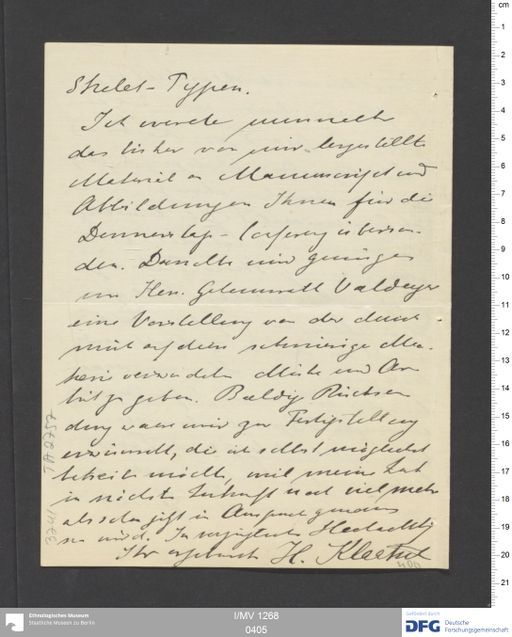 Skelet-Typen.
Ich werde nunmehr
das bisher von mir hergestellte
Material an Manuscript und
Abbildungen Ihnen für die
Donnerstags-Conferenz übersen-
den. Dasselbe wird genügen
um Herrn Geheimrath Waldeyer
eine Vorstellung von der durch
mich auf diese schwierige Ma-
terie verwandten Mühe und Ar-
beit zu geben. Baldige Rücksen
dung wäre mir zur Fertigstellung
erwünscht, die ich selbst möglichst
bald, weil meine Zeit
in nächster Zukunft noch viel mehr
als schon jetzt in Anspruch genommen
sein wird. In vorzüglicher Hochachtung
Ihr ergebenster H. Klaatsch
IA 2757
I/MV 1268
0405
Ethnologisches Museum
Staatliche Museen zu Berlin
Gefördert durch
DFG Deutsche
Forschungsgemeinschaft
cm
1
2
3
4
5
6
7
8
9
10
11
12
13
14
15
16
17
18
19
20
21